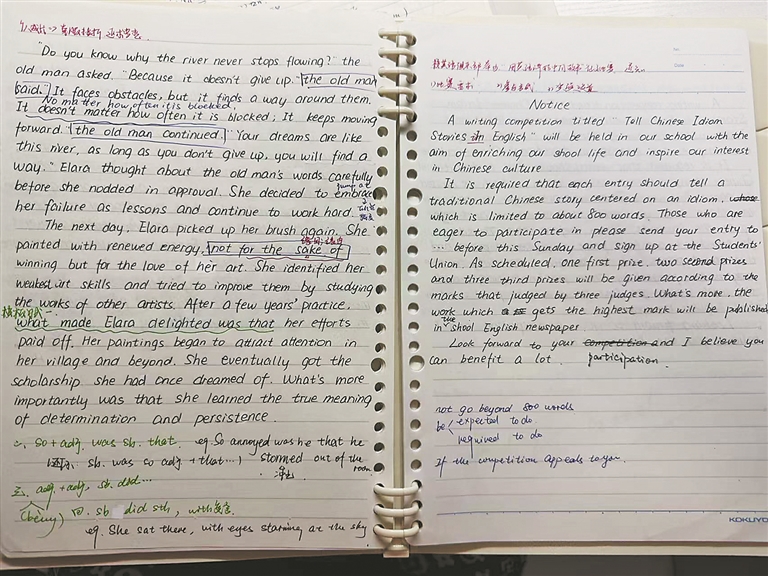 "Do you know why the river never stops flowing?" the
old man asked. "Because it doesn't give up." the old man
said. "It faces obstacles, but it finds a way around them.
No matter how often it is blocked,
It doesn't matter how often it is blocked; It keeps moving
forward." the old man continued. "Your dreams are like
this river, as long as you don't give up, you will find a
way." Elara thought about the old man's words carefully
before she nodded in approval. She decided to embrace
her failure as lessons and continue to work hard.
The next day, Elara picked up her brush again. She
painted with renewed energy, not for the sake of
winning but for the love of her art. She identified her
weakest art skills and tried to improve them by studying
the works of other artists. After a few years' practice,
what made Elara delighted was that her efforts
paid off. Her paintings began to attract attention in
her village and beyond. She eventually got the
scholarship she had once dreamed of. What's more
importantly was that she learned the true meaning
of determination and persistence.
二. so + adj. was sb. that. eg. So annoyed was he that he
sb. was so adj. + that...) stormed out of the
room.
三. adj. + adj, sb. did...
(being) 四. sb did sth, with
eg. She sat there, with eyes starning at the sky
No.
Date
Notice
A writing competition titled "Tell Chinese Idiom
Stories in English" will be held in our school with the
aim of enriching our shool life and inspire our interest
in Chinese culture
It is required that each entry should tell a
traditional Chinese story centered on an idiom, whose
which is limited to about 800 words. Those who are
eager to participate in please send your entry to
... before this Sunday and sign up at the Students'
Union. As scheduled, one first prize, two second prizes
and three third prizes will be given according to the
marks that judged by three judges. What's more, the
work which gets the highest mark will be published
in the shool English newspaper.
Look forward to your competition and I believe you
can benefit a lot. participation.
not go beyond 800 words
be expected to do
required to do
If the competition appeals to you.
KOKUYO